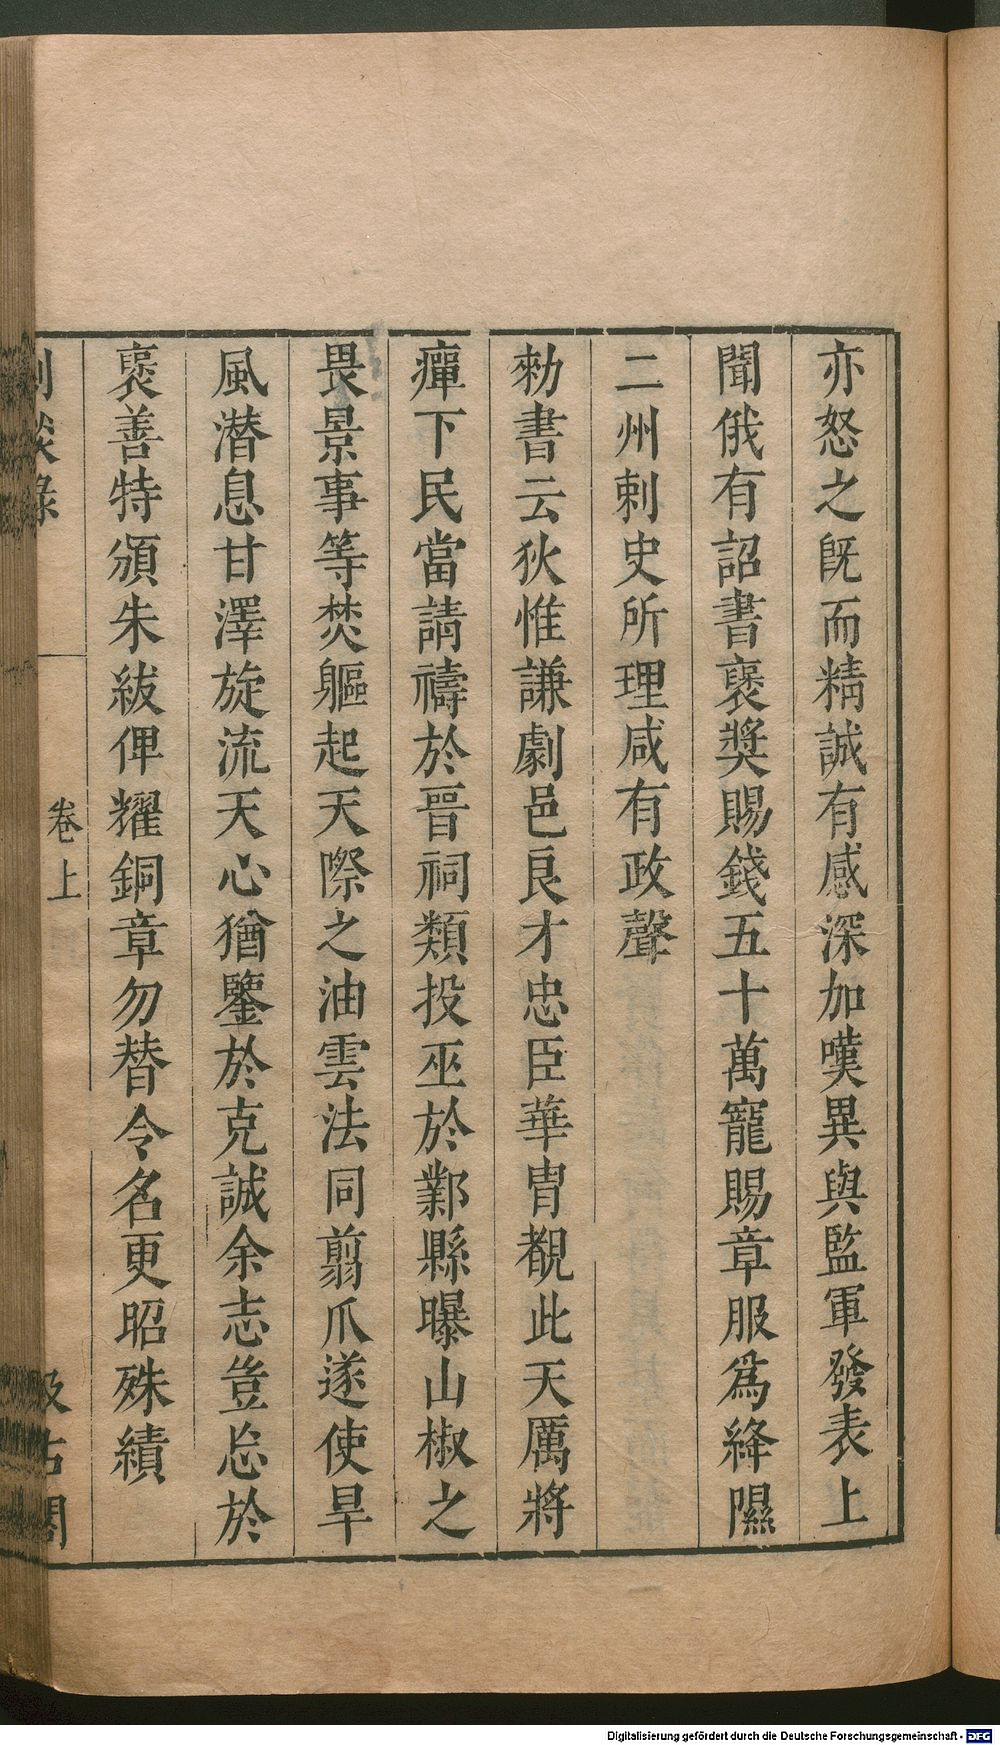 亦怒之旣而精誠有感深加嘆異與監軍發表上
聞俄有詔書襃獎賜錢五十萬寵賜章服爲絳隰
二州刺史所理咸有政聲
勑書云狄惟謙劇邑良才忠臣華冑覩此天厲將
癉下民當請禱於晉祠類投巫於鄴縣曝山椒之
畏景事等焚軀起天際之油雲法同翦爪遂使旱
風潛息甘澤旋流天心猶鑒於克誠余志豈忘於
襃善特頒朱紱俾耀銅章勿替令名更昭殊績
劇談錄 卷上 汲古閣
Digitalisierung gefördert durch die Deutsche Forschungsgemeinschaft - DFG